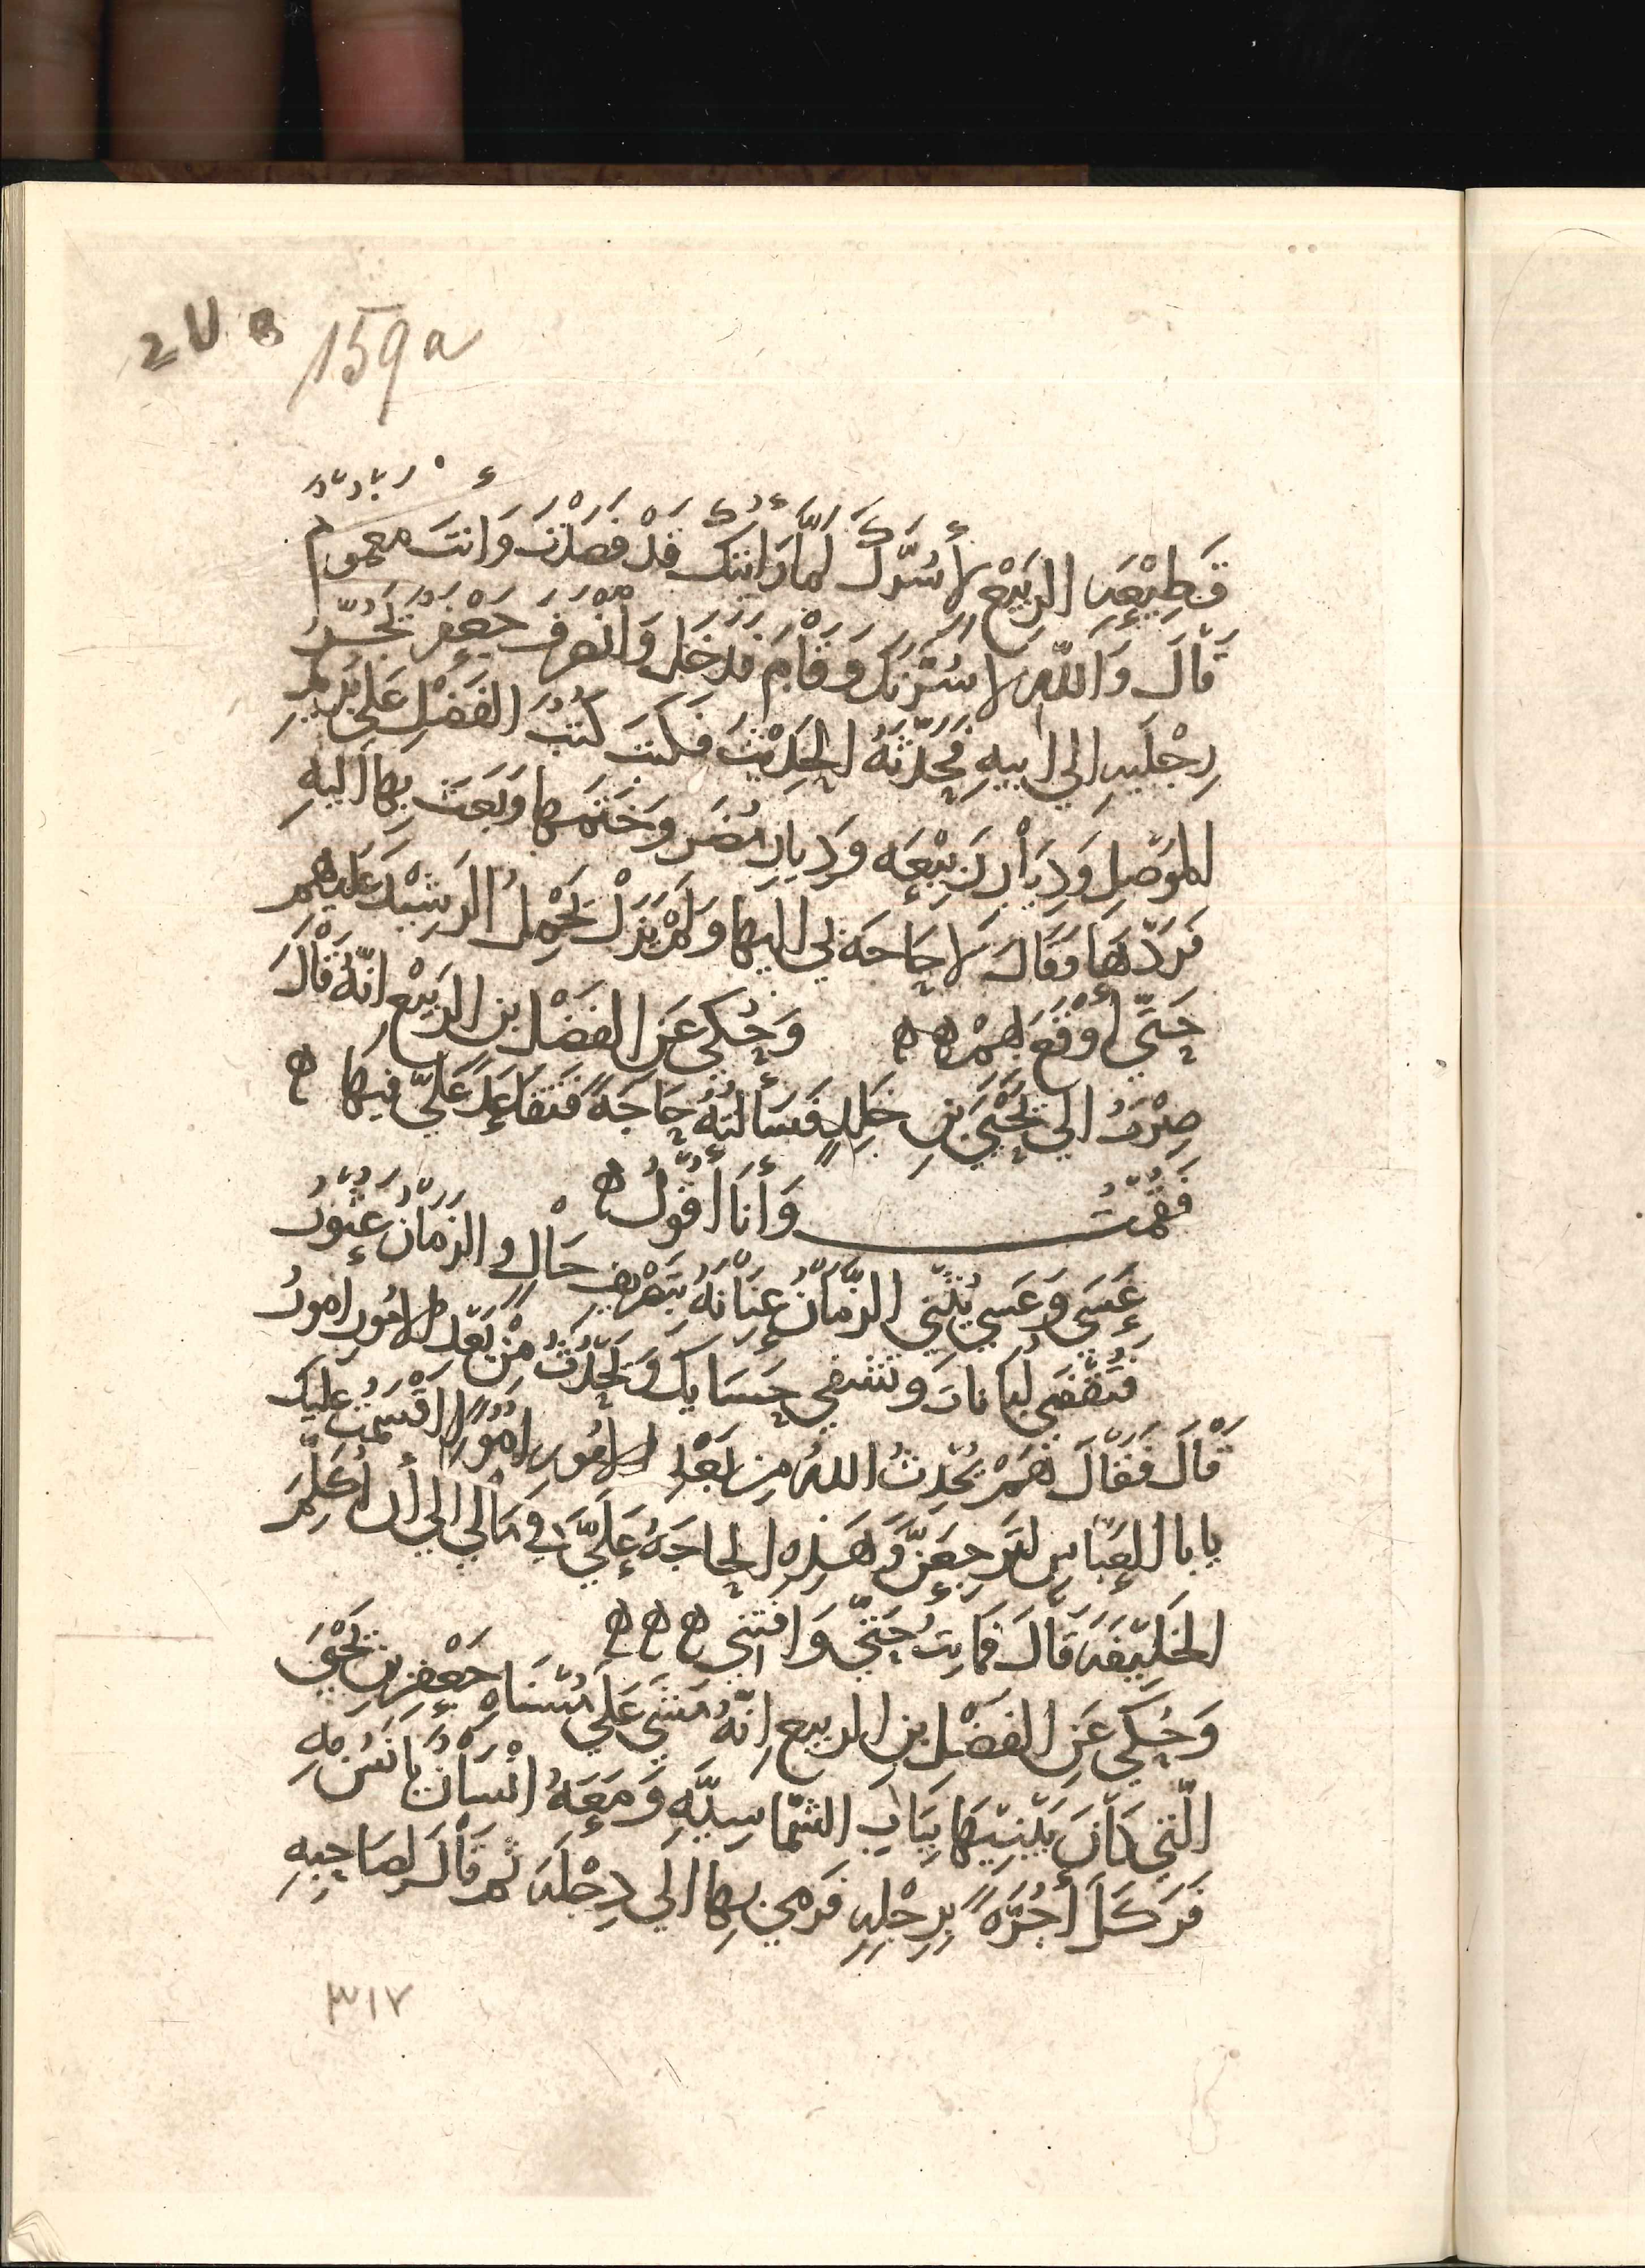 159a
قَطِيْعَةِ الرَبيْعِ لأسُرّكَ لمّا رَأيتك قَدْ فَصَلْتَ وَانتَ مغموم
قَالَ وَاللهِ لاسُرّنكَ وَقَامَ فَدَخَلَ وَانْصَرفَ جَعْفَرٌ يَجُرّ
رِجْلَيهِ الي ابيهِ فَحَدّثَهُ الحَدِيْثَ فكتبَ كُتبَ الفَضْلِ عَلي
الموْصِلِ وَدِيَارِ رَبِيْعَه وَدِيَارِ مُضَر وَخَتَمهَا وَبَعَثَ بِهَا اليهِ
فَرَدّهَا وَقَالَ لَا حَاجَة لي اليهَا وَلَمْ يَزَلْ يَحْمِلُ الرَشِيْدَ عَليهم
حَتّي أوْقَعَ بهمْ ه ه وَحُكي عَنِ الفَضْلِ بن الرَبيْعِ انّهُ قَالَ
صِرْتُ الي يَحْيَي بنِ خَلِدٍ فَسَألتهُ حَاجَةً فَتقَاعَدَ عَلَيّ فيهَا ه
فَقُمْتُ وَأنَا أقُولُ ه
عَسَي وَعَسي يُثْنِي الزّمَانُ عِنَانَهُ بتَصْرِيفِ حَالٍ وَالزّمَانُ عَثُورُ
فتُقْضَي لبَانَات وَتشفي حَسَايك وَتَحْدُثُ مِنْ بَعْدِ الامُورِ امُورُ
قَالَ فَقَالَ نَعَمْ يُحْدِثُ اللهُ مِن بَعْدِ الامُورِ امُورًا اقْسَمْتُ عَليك
يَابا العَبّاسِ لتَرجِعَنّ وَهَذِهِ الحاجَةُ عَلَيَّ في مَالي الي أن أكلم
الخَلِيْفَةَ قَالَ فما بِتُ حَتّي وَافتني ه ه ه
وَحُكي عَنِ الفَضْلِ بنِ الربيع انّهُ مَشَي عَلي مُسَنّاةِ جَعْفَرِ بن يَحْيَي
الّتي كَانَ يَبْنِيْهَا بِبَابِ الشمّاسِيّةِ وَمَعَهُ انْسَانٌ يَأنسُ بهِ
فَرَكَلَ أجُرّةً بِرِجْلِهِ فَرَمي بِهَا الَي دِجْلَةَ ثم قَالَ لصَاحِبهِ
٣١٧